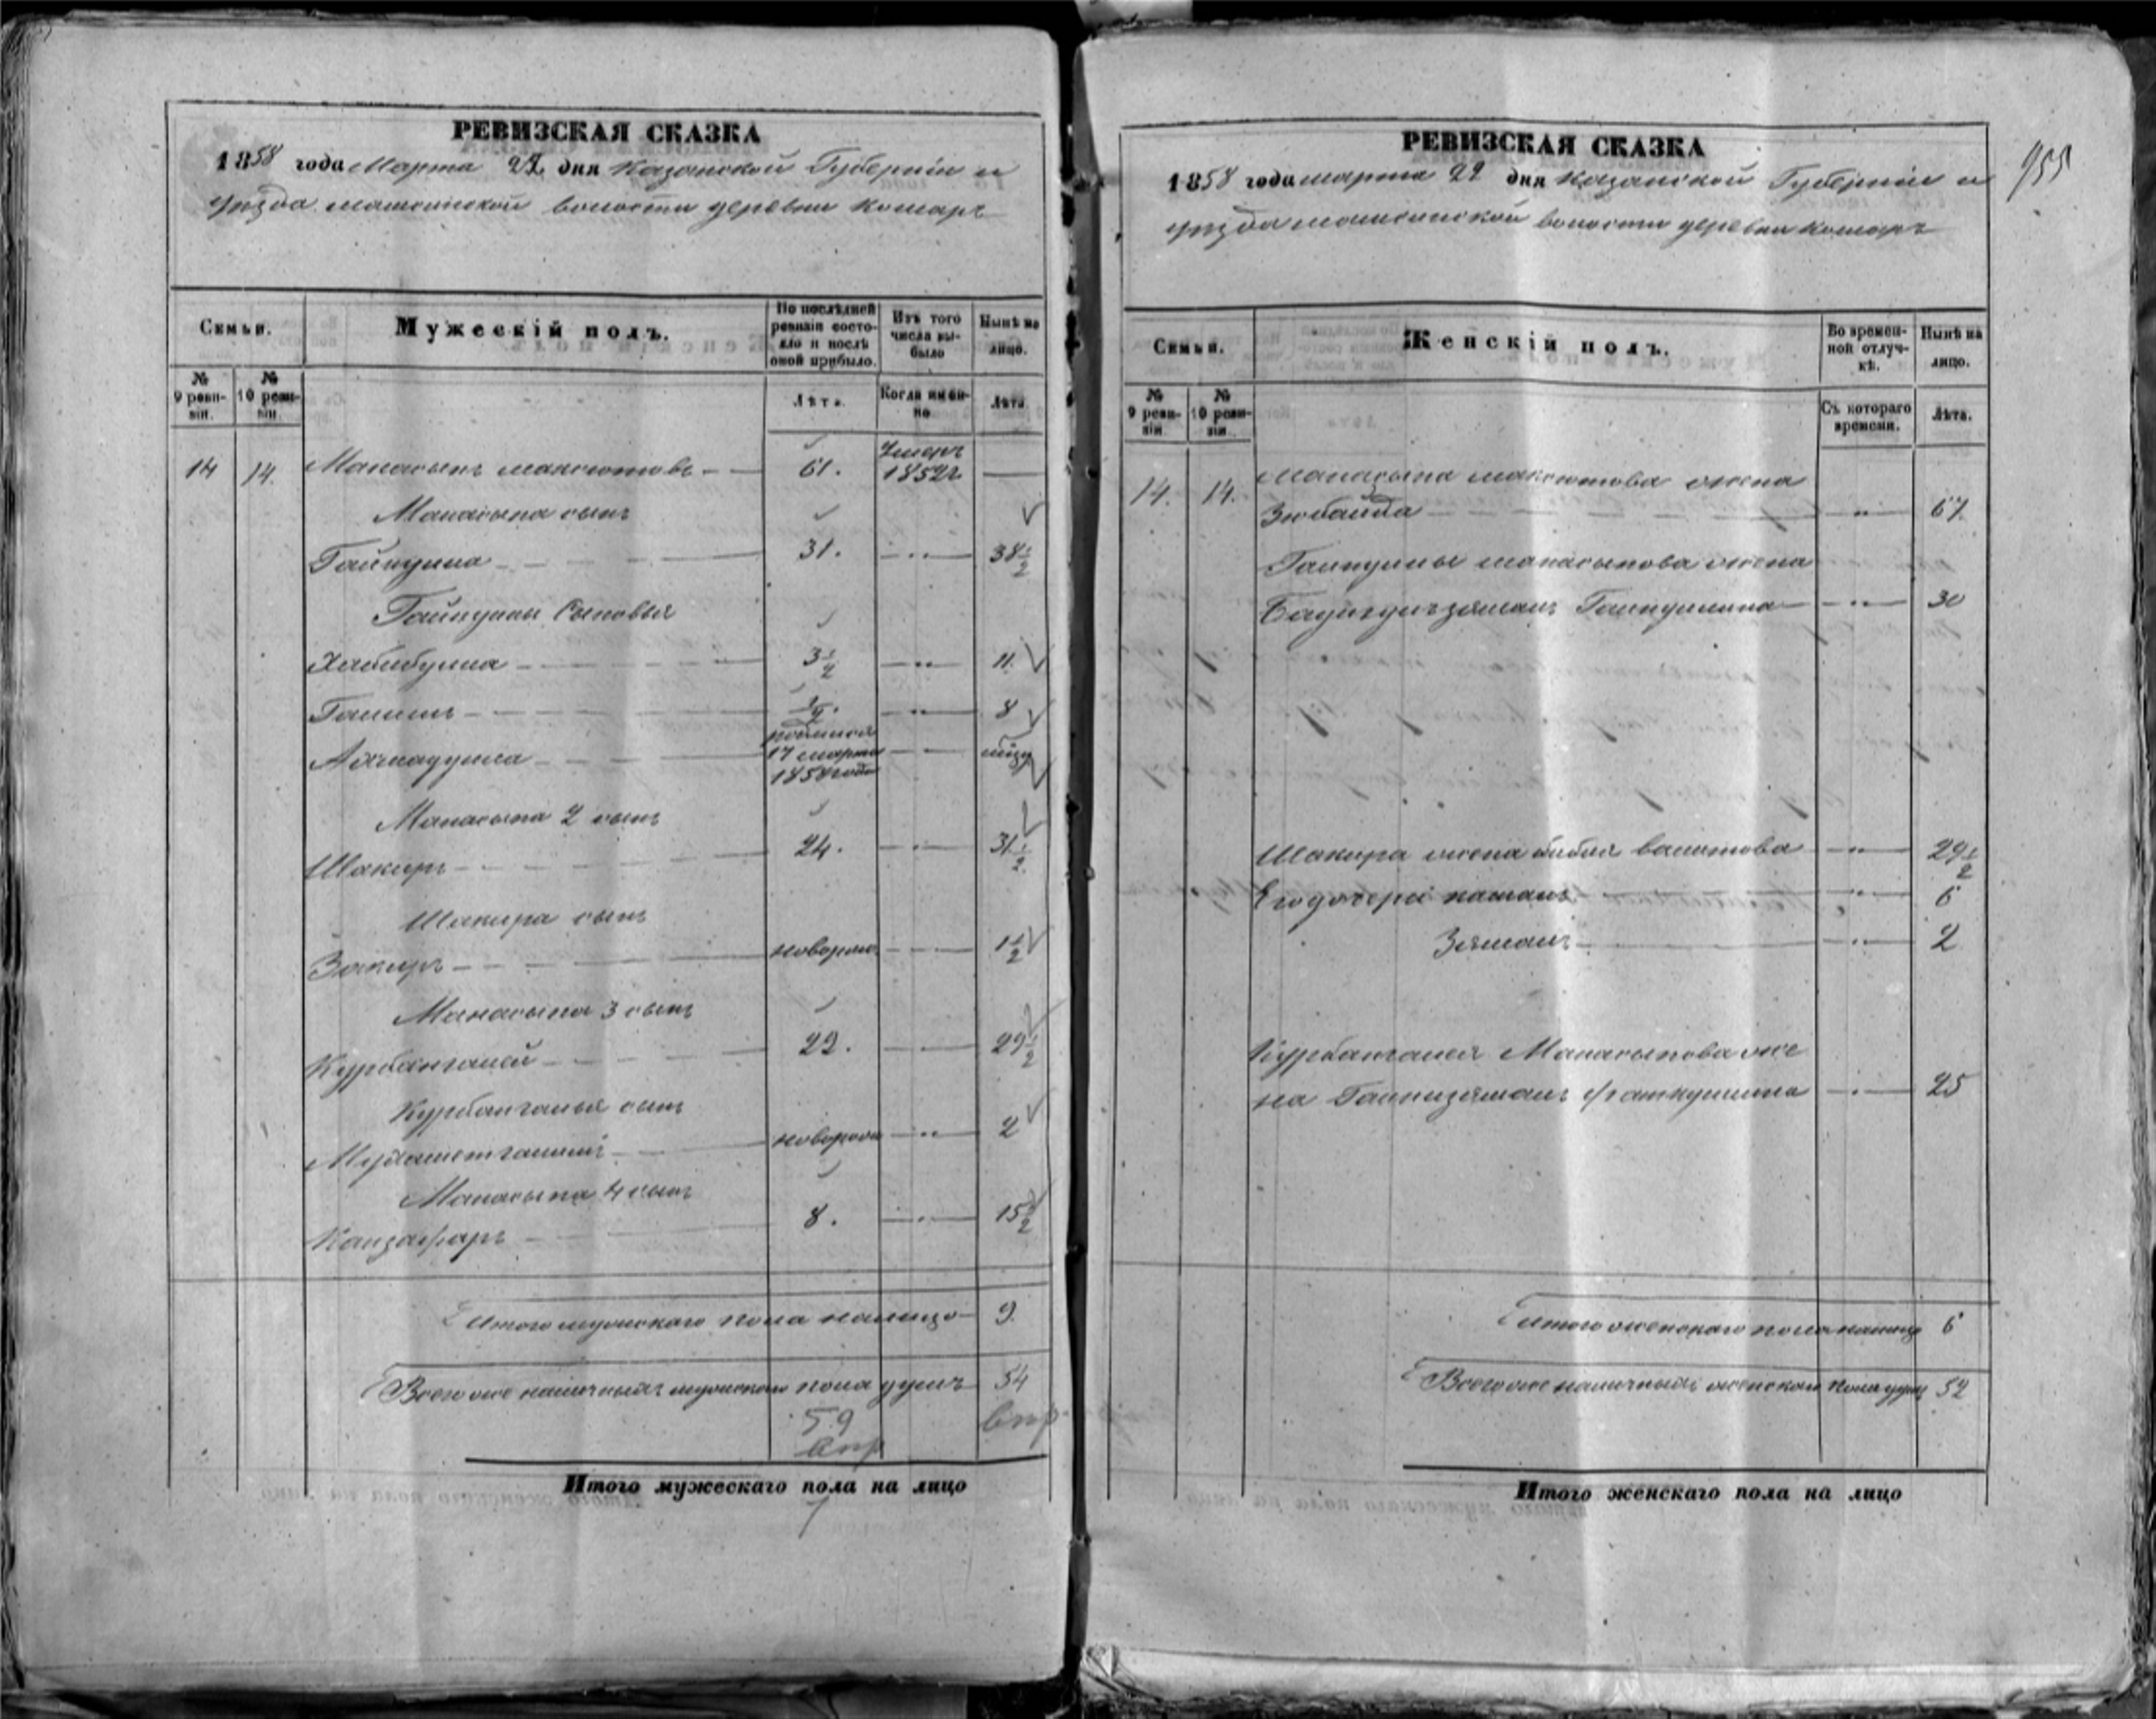 РЕВИЗСКАЯ СКАЗКА
1858 года Марта 22 дня Казанской Губернiи и
уѣзда волости деревни Комаръ
Семьи.
Мужескiй полъ.
По послѣдней ревизiи состояло и послѣ оной прибыло.
Изъ того числа выбыло
Нынѣ на лицо.
№ 9 ревизiи.
№ 10 ревизiи.
Лѣта.
Когда именно
Лѣта
14 14. Манасыпъ Максютовъ 61. Умеръ 1852г
Манасыпа сынъ
Гайнулла 31. 38 1/2
Гайнуллы Сыновья
Хабибулла 3 1/2 11.
Галимъ 8
Ахмадулла родился 17 марта 1858 года
Манасыпа 2 сынъ
Шакиръ 24. 31 1/2
Шакира сынъ
Закиръ новорож 1 1/2
Манасыпа 3 сынъ
Курбангалей 22. 29 1/2
Курбангалея сынъ
новорож 2
Манасыпа 4 сынъ
8. 15 1/2
Итого мужскаго пола налицо 9.
Всего же наличныхъ мужскаго пола душъ 54
59
Итого мужескаго пола на лицо
РЕВИЗСКАЯ СКАЗКА
955
1858 года марта 22 дня Казанской Губернiи и
уѣзда волости деревни Комаръ
Семьи.
Женскiй полъ.
Во временной отлучкѣ.
Нынѣ на лицо.
№ 9 ревизiи
№ 10 ревизiи.
Съ котораго времени.
Лѣта.
14. 14. Манасыпа Максютова жена
Зюбайда 67.
Гайнуллы Манасыпова жена
Гайнуллина 30
Шакира жена 29 1/2
Его дочери 6
Зяманъ 2
Курбангалея Манасыпова же
на Фаткуллина 25
Итого женскаго пола налицо 6
Всего же наличныхъ женскаго пола душъ 52
Итого женскаго пола на лицо